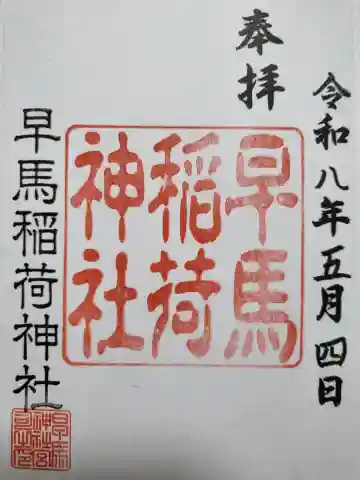 奉拝
令和八年五月四日
早馬
稲荷
神社
早馬稲荷神社